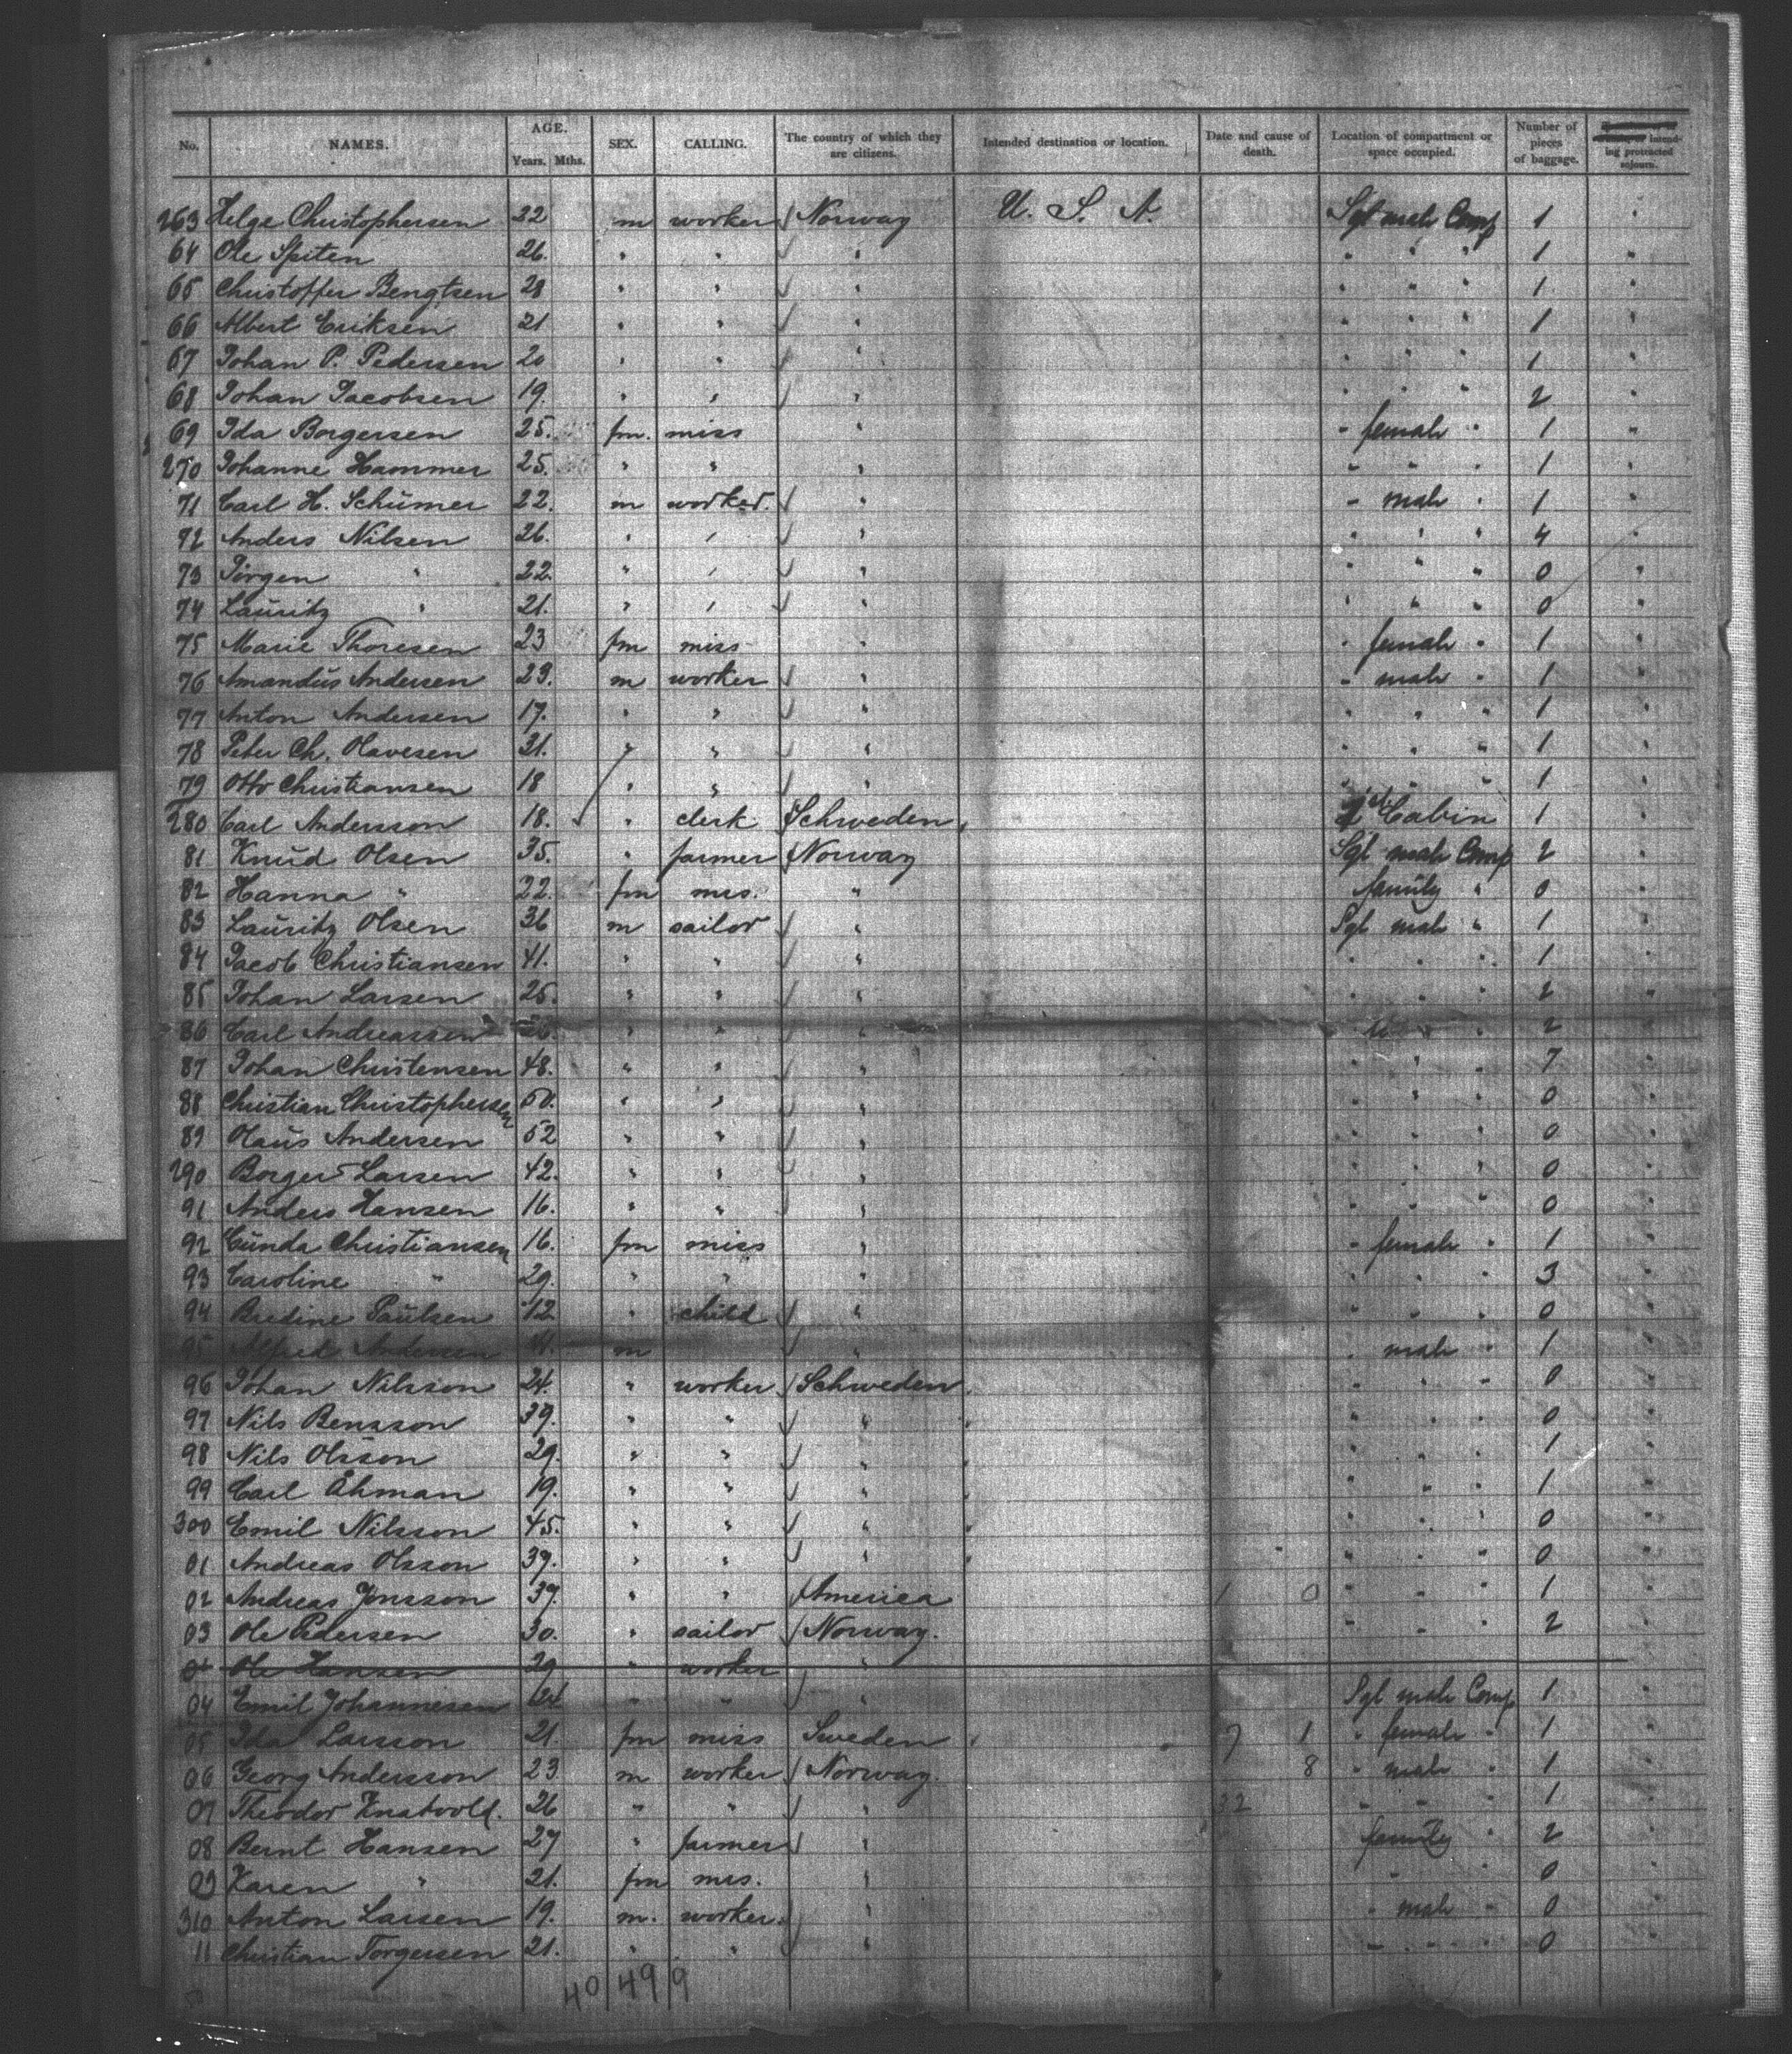 No. NAMES. AGE. Years. Mths. SEX. CALLING. The country of which they are citizens. Intended destination or location. Date and cause of death. Location of compartment or space occupied. Number of pieces of baggage. intending protracted sojourn.
263 Helge Christophersen 22 m worker Norway U. S. A. Sgl male Comp 1 "
64 Ole Speten 26. " " " " " " 1 "
65 Christoffer Bengtsen 28 " " " " " " 1 "
66 Albert Eriksen 21 " " " " " " 1 "
67 Johan P. Pedersen 20 " " " " " " 1 "
68 Johan Jacobsen 19. " " " " " " 2 "
69 Ida Borgersen 25. fm. miss " " female " 1 "
270 Johanne Hammer 25. " " " " " " 1 "
71 Carl H. Schümer 22. m worker. " " male " 1 "
72 Anders Nilsen 26. " " " " " " 4 "
73 Jörgen " 22. " " " " " " 0 "
74 Lauritz " 21. " " " " " " 0 "
75 Marie Thoresen 23 fm miss " " female " 1 "
76 Amandus Andersen 29. m worker " " male " 1 "
77 Anton Andersen 17. " " " " " " 1 "
78 Peter Ch. Olavesen 31. " " " " " " 1 "
79 Otto Christiansen 18 " " " " " " 1 "
280 Carl Andersson 18. " clerk Schweden Cabin 1 "
81 Knud Olsen 35. " farmer Norway Sgl male Comp 2 "
82 Hanna " 22. fm mrs. " family " 0 "
83 Lauritz Olsen 36 m sailor " Sgl male " 1 "
84 Jacob Christiansen 41. " " " " " " 1 "
85 Johan Larsen 25. " " " " " " 2 "
86 Carl Andreassen " " " " " 2 "
87 Johan Christensen 48. " " " " " " 7 "
88 Christian Christophersen 50. " " " " " " 0 "
89 Olaus Andersen 52 " " " " " " 0 "
290 Borger Larsen 42. " " " " " " 0 "
91 Anders Hansen 16. " " " " " " 0 "
92 Gunda Christiansen 16. fm miss " " female " 1 "
93 Caroline " 29. " " " " " " 3 "
94 Bredine Paulsen 12 " child " " " " 0 "
95 Alfred Andersen 11. m " " male " 1 "
96 Johan Nilsson 24. " worker Schweden " " " 0 "
97 Nils Bensson 39. " " " " " " 0 "
98 Nils Olsson 29. " " " " " " 1 "
99 Carl Åhman 19. " " " " " " 1 "
300 Emil Nilsson 45. " " " " " " 0 "
01 Andreas Olsson 39. " " " " " " 0 "
02 Andreas Jonsson 37. " " America 1 0 " " " 1 "
03 Ole Pedersen 30. " sailor Norway. " " " 2 "
Ole Hansen 29 " worker "
04 Emil Johannesen 24 " " " Sgl male Comp 1 "
05 Ida Larsson 21. fm miss Sweden 7 1 " female " 1 "
06 Georg Andersson 23 m worker Norway. 8 " male " 1 "
07 Theodor Knatvold. 26 " " " 32 " " " 1 "
08 Bernt Hansen 27 " farmer " family " 2 "
09 Karen " 21. fm mrs. " " " 0 "
310 Anton Larsen 19. m. worker. " " male " 0 "
11 Christian Torgersen 21. " " " " " " 0 "
40 49 9